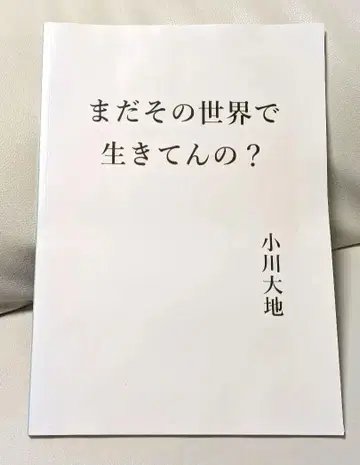 まだその世界で
生きてんの？
小川大地